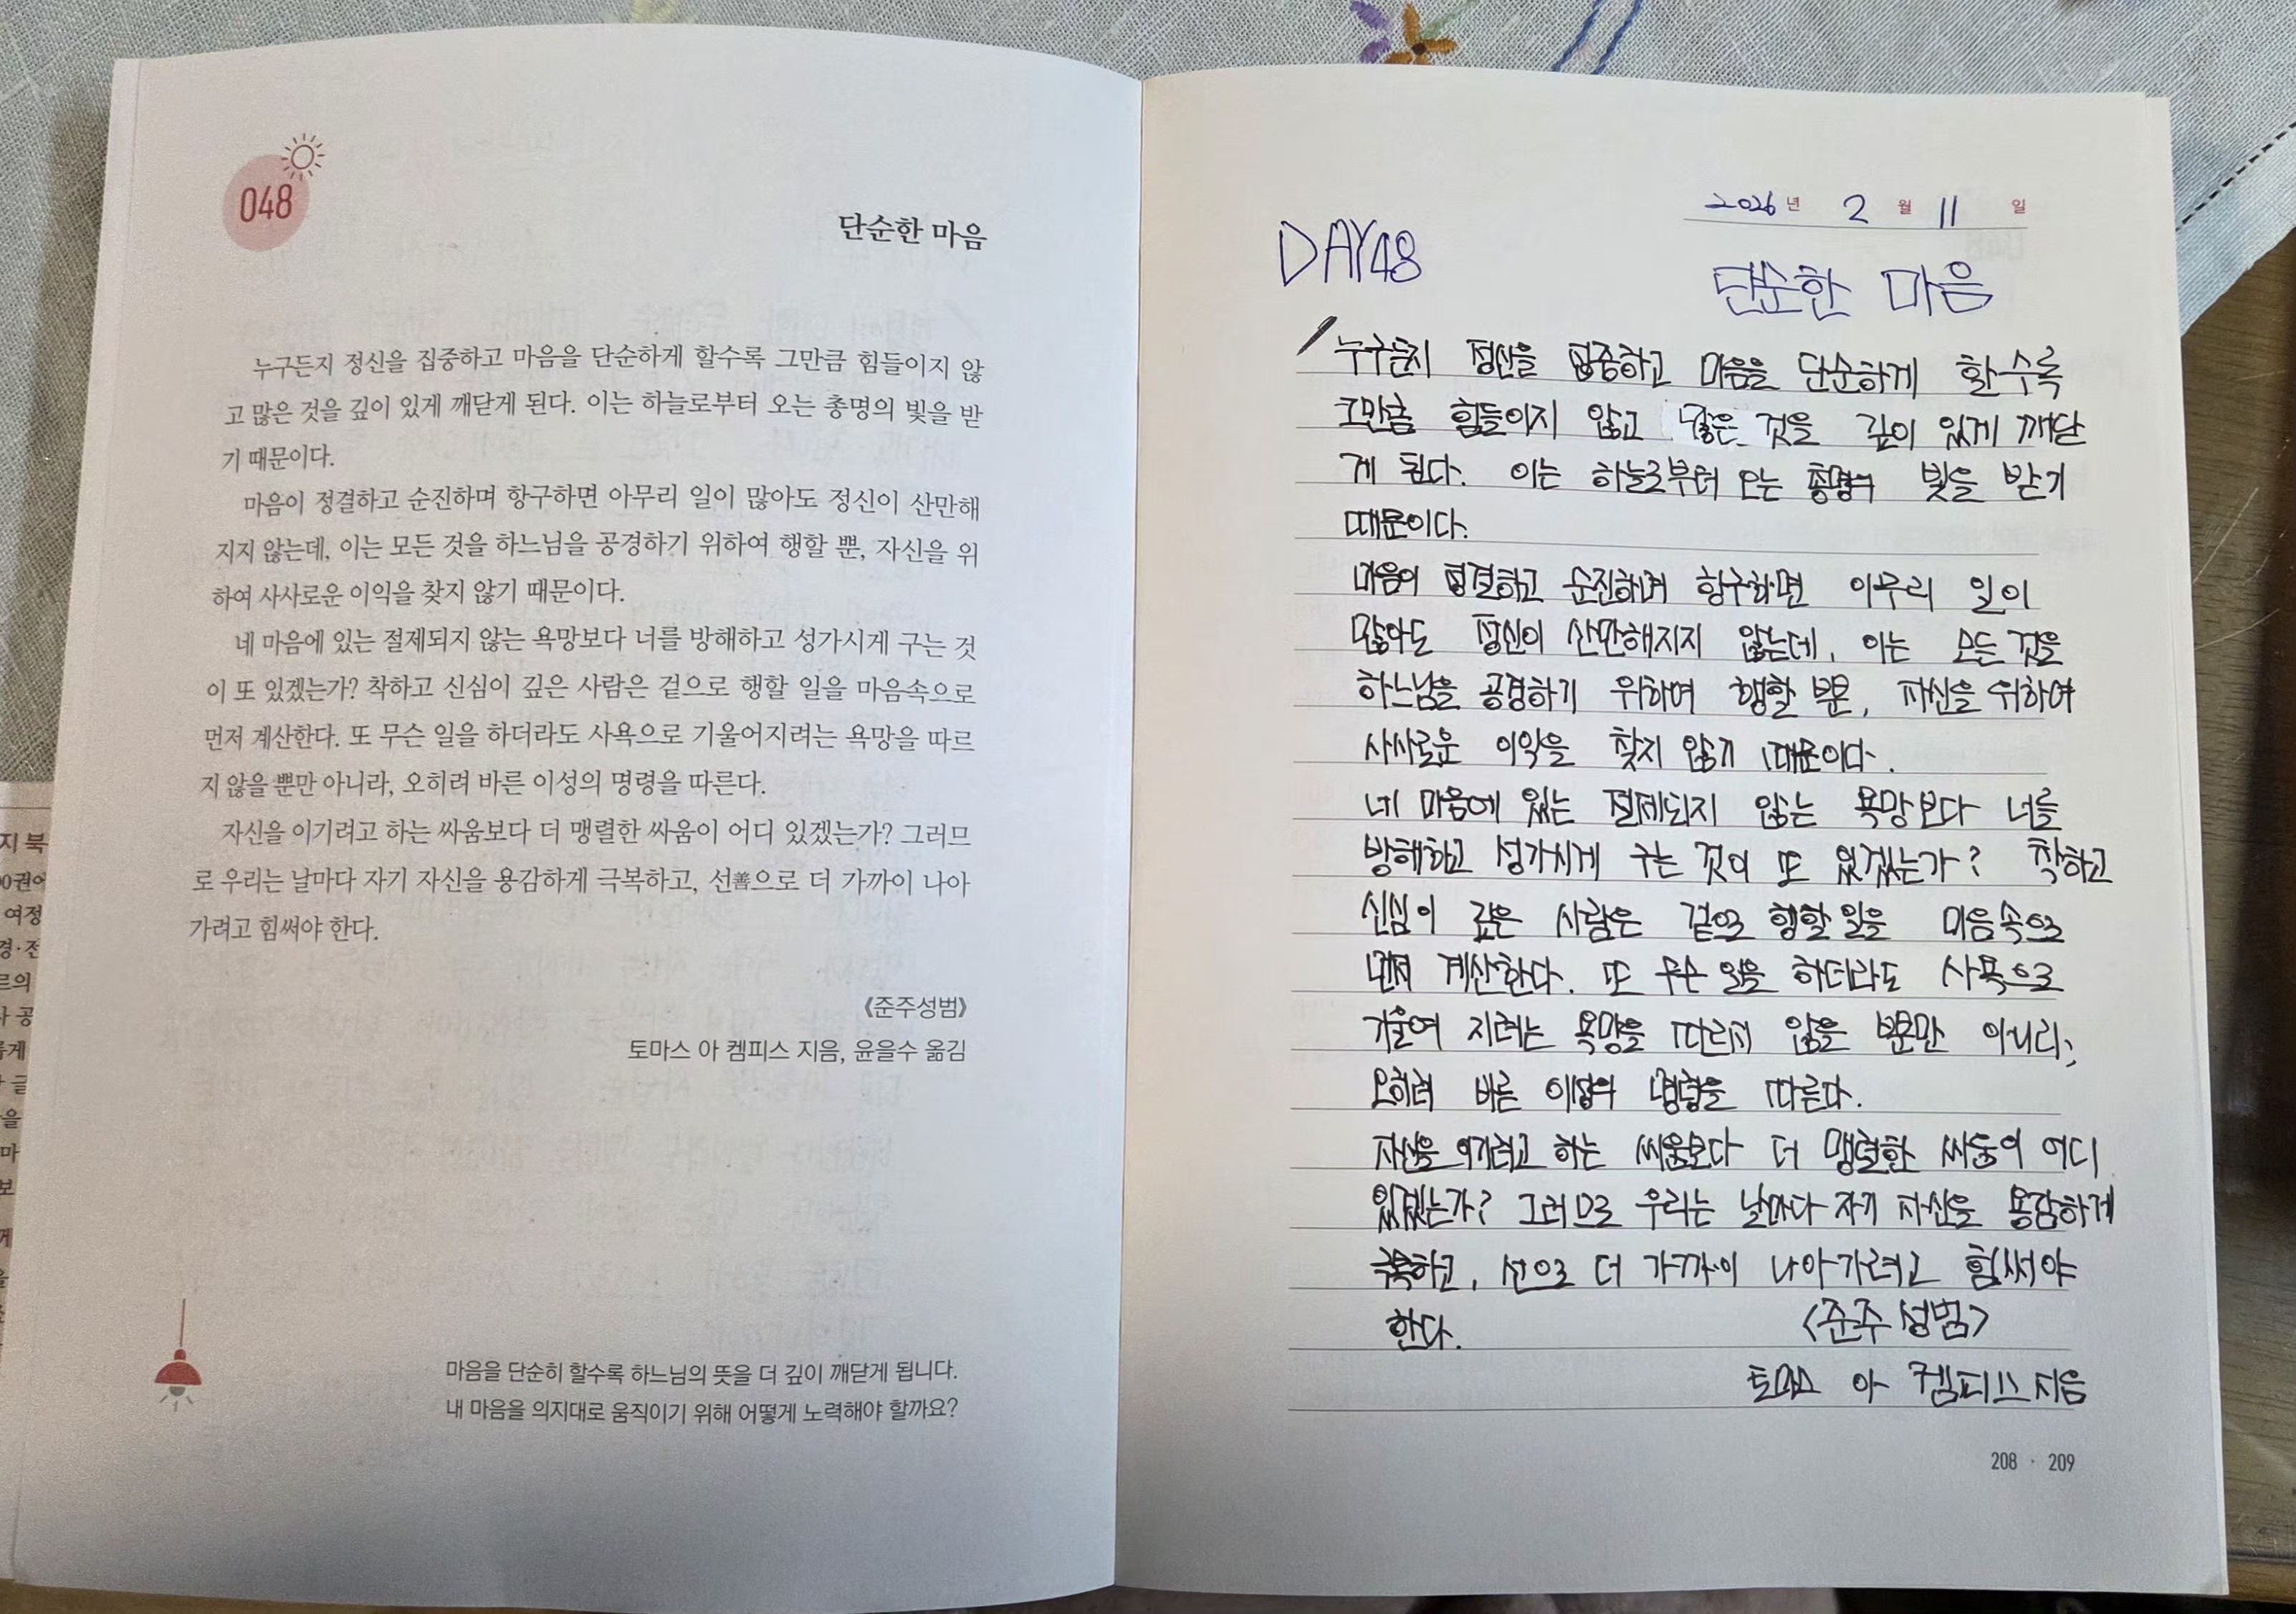 048
단순한 마음
누구든지 정신을 집중하고 마음을 단순하게 할수록 그만큼 힘들이지 않
고 많은 것을 깊이 있게 깨닫게 된다. 이는 하늘로부터 오는 총명의 빛을 받
기 때문이다.
마음이 정결하고 순진하며 항구하면 아무리 일이 많아도 정신이 산만해
지지 않는데, 이는 모든 것을 하느님을 공경하기 위하여 행할 뿐, 자신을 위
하여 사사로운 이익을 찾지 않기 때문이다.
네 마음에 있는 절제되지 않는 욕망보다 너를 방해하고 성가시게 구는 것
이 또 있겠는가? 착하고 신심이 깊은 사람은 겉으로 행할 일을 마음속으로
먼저 계산한다. 또 무슨 일을 하더라도 사욕으로 기울어지려는 욕망을 따르
지 않을 뿐만 아니라, 오히려 바른 이성의 명령을 따른다.
자신을 이기려고 하는 싸움보다 더 맹렬한 싸움이 어디 있겠는가? 그러므
로 우리는 날마다 자기 자신을 용감하게 극복하고, 선善으로 더 가까이 나아
가려고 힘써야 한다.
《준주성범》
토마스 아 켐피스 지음, 윤을수 옮김
마음을 단순히 할수록 하느님의 뜻을 더 깊이 깨닫게 됩니다.
내 마음을 의지대로 움직이기 위해 어떻게 노력해야 할까요?
2026년 2월 11일
DAY48
단순한 마음
누구든지 정신을 집중하고 마음을 단순하게 할수록
그만큼 힘들이지 않고 많은 것을 깊이 있게 깨닫
게 된다. 이는 하늘로부터 오는 총명의 빛을 받기
때문이다.
마음이 정결하고 순진하며 항구하면 아무리 일이
많아도 정신이 산만해지지 않는데, 이는 모든 것을
하느님을 공경하기 위하여 행할 뿐, 자신을 위하여
사사로운 이익을 찾지 않기 때문이다.
네 마음에 있는 절제되지 않는 욕망보다 너를
방해하고 성가시게 구는 것이 또 있겠는가? 착하고
신심이 깊은 사람은 겉으로 행할 일을 마음속으로
먼저 계산한다. 또 무슨 일을 하더라도 사욕으로
기울어 지려는 욕망을 따르지 않을 뿐만 아니라,
오히려 바른 이성의 명령을 따른다.
자신을 이기려고 하는 싸움보다 더 맹렬한 싸움이 어디
있겠는가? 그러므로 우리는 날마다 자기 자신을 용감하게
극복하고, 선으로 더 가까이 나아가려고 힘써야
한다.
<준주성범>
토마스 아 켐피스 지음
208 · 209